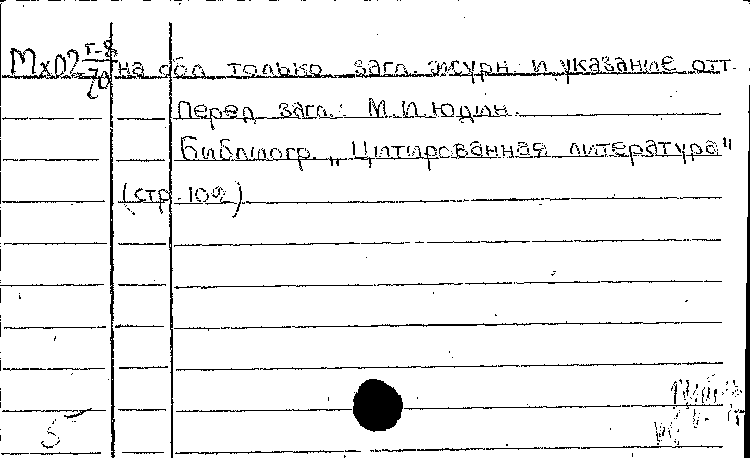 МхD2 г-8/20 на обл только загл. журн. и указание отт.
Перед загл.: М.И. Юдин.
Библиогр. „Цитированная литература"
(стр. 102)
5